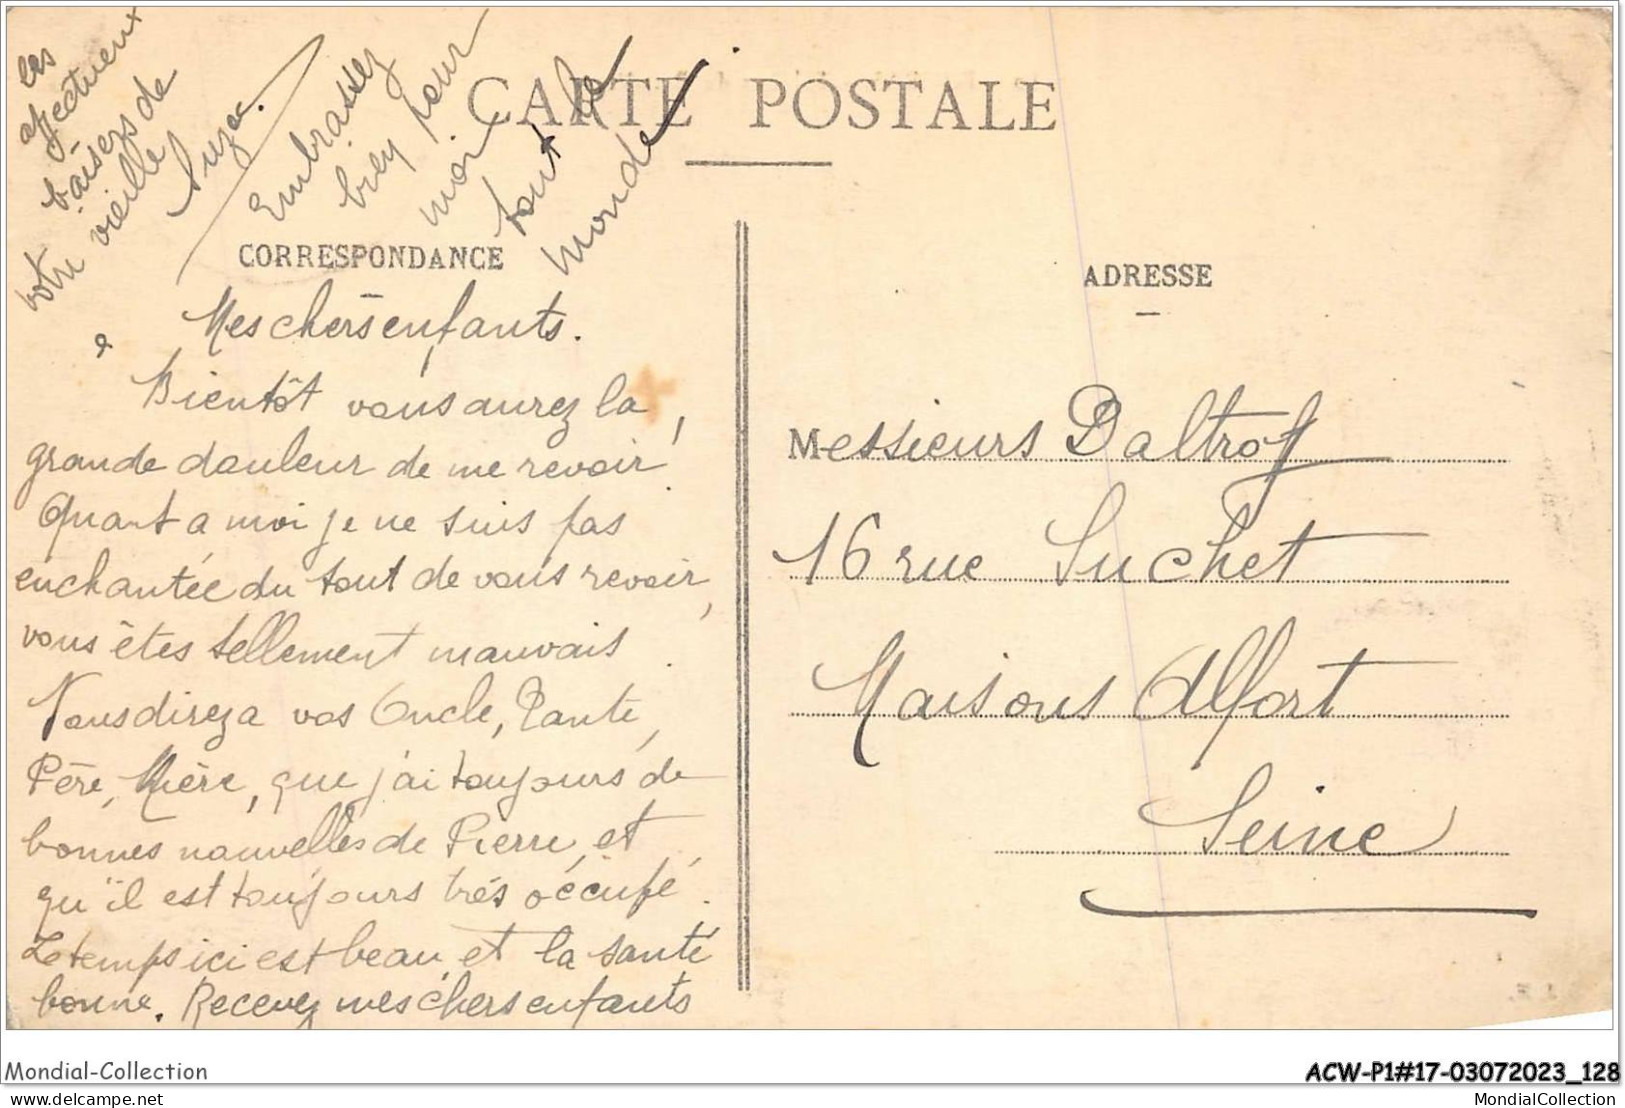 CARTE POSTALE
CORRESPONDANCE
Mes chers enfants.
Bientôt vous aurez la
grande douleur de me revoir!
Quant a moi je ne suis pas
enchantée du tout de vous revoir,
vous êtes tellement mauvais.
Vous direz a vos Oncle, Tante,
Père, Mère, que j'ai toujours de
bonnes nouvelles de Pierre, et
qu'il est toujours très occupé.
Le temps ici est beau, et la santé
bonne. Recevez mes chers enfants
les
affectueux
baisers de
votre vieille
Embrassez
bien pour
moi
tout le
monde
ADRESSE
Messieurs Daltroff
16 rue Suchet
Maisons Alfort
Seine
Mondial-Collection
ACW-P1#17-03072023_128
delcampe.net
MondialCollection